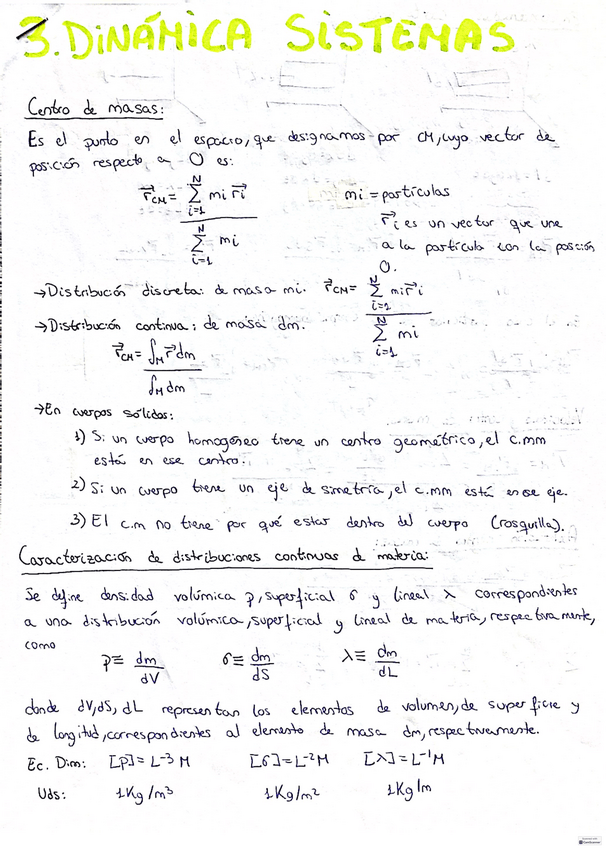 3. DINÁMICA SISTEMAS
Centro de masas:
Es el punto en el espacio, que designamos por CM, cuyo vector de
posición respecto a O es:
r⃗CM = ∑ᵢ₌₁ᴺ mi r⃗i / ∑ᵢ₌₁ᴺ mi
mi = partículas
r⃗i es un vector que une
a la partícula con la posición
O.
→Distribución discreta: de masa mi. r⃗CM = ∑ᵢ₌₁ᴺ mi r⃗i / ∑ᵢ₌₁ᴺ mi
→Distribución continua: de masa dm.
r⃗CM = ∫M r⃗ dm / ∫M dm
→En cuerpos sólidos:
1) Si un cuerpo homogéneo tiene un centro geométrico, el c.mm
está en ese centro.
2) Si un cuerpo tiene un eje de simetría, el c.mm está en ese eje.
3) El c.m no tiene por qué estar dentro del cuerpo (rosquilla).
Caracterización de distribuciones continuas de materia:
Se define densidad volúmica ρ, superficial σ y lineal λ correspondientes
a una distribución volúmica, superficial y lineal de materia, respectivamente,
como
ρ ≡ dm/dV σ ≡ dm/dS λ ≡ dm/dL
donde dV, dS, dL representan los elementos de volumen, de superficie y
de longitud, correspondientes al elemento de masa dm, respectivamente.
Ec. Dim: [ρ] = L⁻³ M [σ] = L⁻² M [λ] = L⁻¹ M
Uds: 1 Kg/m³ 1 Kg/m² 1 Kg/m
CamScanner